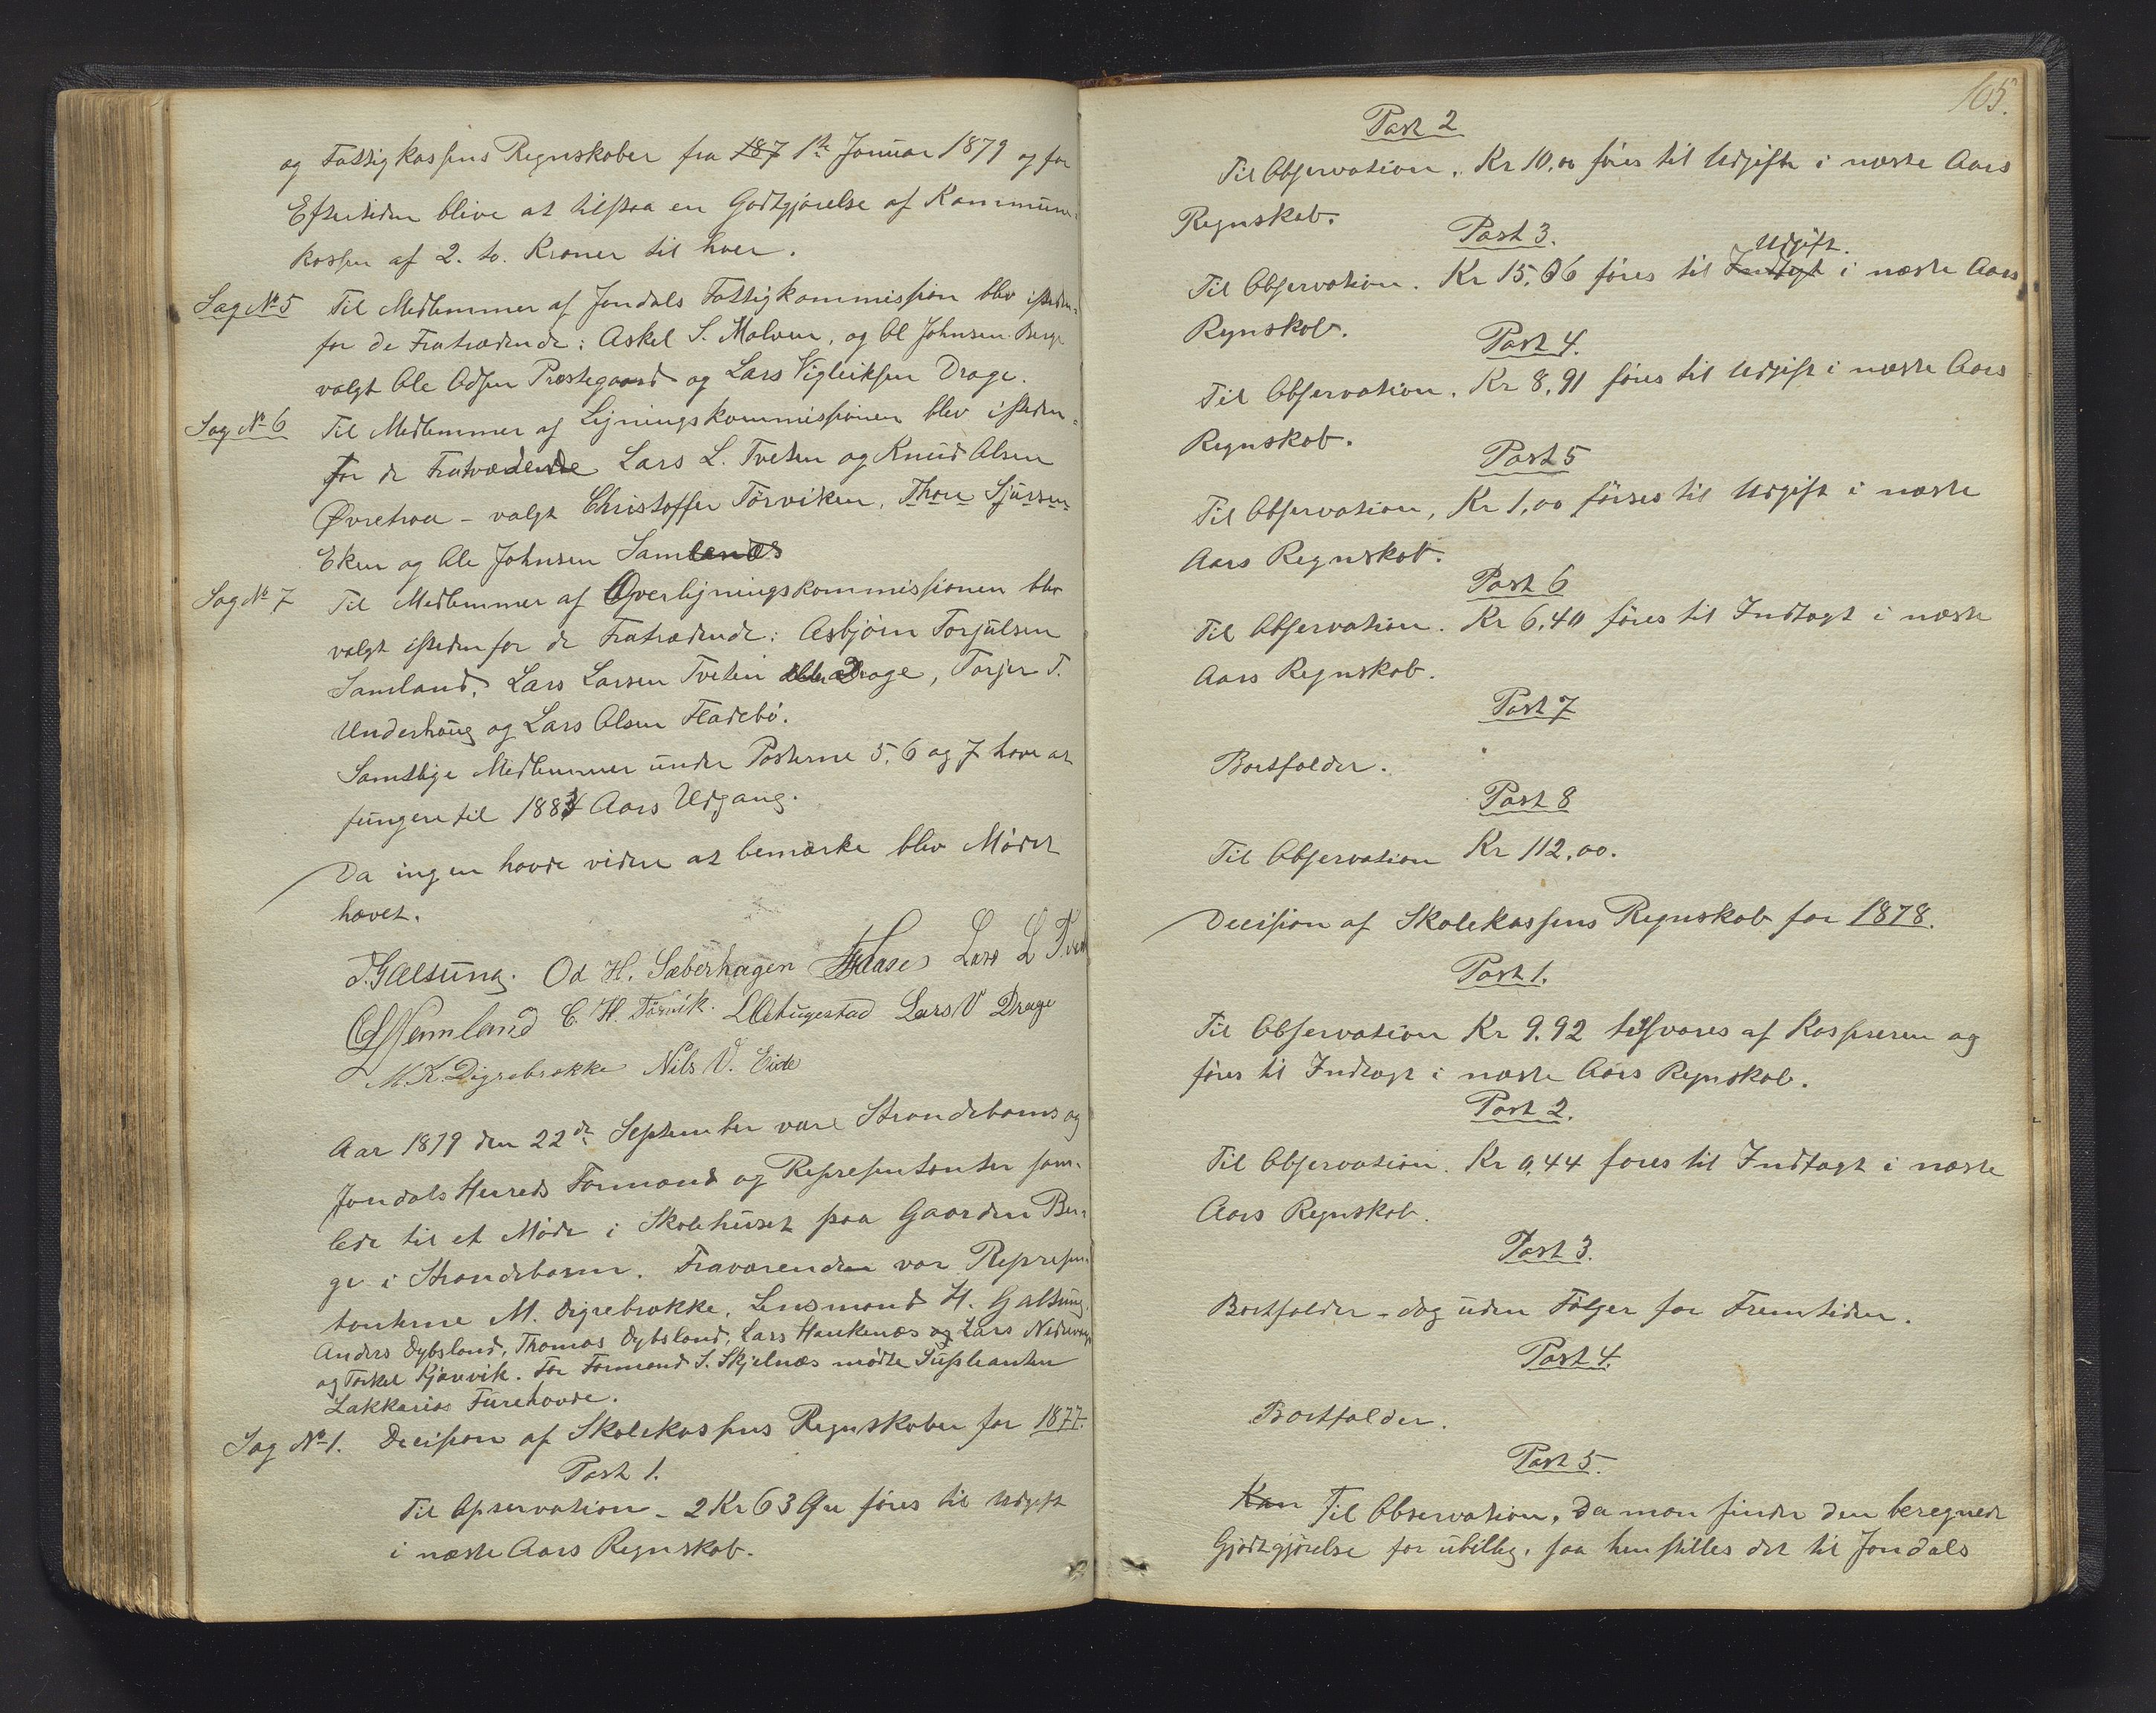 og Fattigkassens Regnskaber fra 187 1ste Januar 1879 og for
Eftertiden blive at tilstaa en Godtgjörelse af Kommune-
kassen af 2. to. Kroner til hver.
Sag No 5 Til Medlemmer af Jondals Fattigkommission blev isteden-
for de Fratrædende: Askel S. Malven, og Ol Johnsen Berge
valgt Ole Odsen Præstegaard og Lars Vigleiksen Drage.
Sag No 6 Til Medlemmer af Ligningskommissionen blev isteden-
for de Fratrædende Lars L. Tveten og Knud Olsen
Øvretraa - valgt Christoffer Törviken, Thore Sjursen
Eken og Ole Johnsen Samlenæs
Sag No 7 Til Medlemmer af Overligningskommissionen blev
valgt istedenfor de Fratrædende: Asbjörn Torjulsen
Samland, Lars Larsen Tveten Drage, Torjer T.
Underhaug og Lars Olsen Fladebö.
Samtlige Medlemmer under Posterne 5, 6 og 7 have at
fungere til 1883 Aars Udgang.
Da ingen havde videre at bemærke blev Mödet
hævet.
Galtung. Od H. Sæberhagen Hase Lars L Tvet
Semland C. H. Törvik. Augestad Lars V Drage
M. K. Digrebrække Nils V. Eide
Aar 1879 den 22de September vare Strandebarms og
Jondals Herreds Formænd og Repræsentanter sam-
lede til et Möde i Skolehuset paa Gaarden Ber-
ge i Strandebarm. Fraværende var Repræsen-
tanterne M. Digrebrække, Lensmand H. Galtung,
Anders Dybsland, Thomas Dybsland, Lars Haukenæs og Lars
og Torkel Kjærvik. For Formand S. Skjelnæs mödte Supleanten
Zakkarias Furehovde.
Sag No 1. Decision af Skolekassens Regnskaber for 1877.
Post 1.
Til Opservation - 2 Kr 63 Øre föres til Udgift
i næste Aars Regnskab.
165.
Post 2
Til Observation. Kr 10,00 föres til Udgift i næste Aars
Regnskab.
Post 3.
Udgift.
Til Observation. Kr 15,06 föres til Indtægt i næste Aars
Regnskab.
Post 4.
Til Observation. Kr 8,91 föres til Udgift i næste Aars
Regnskab.
Post 5
Til Observation, Kr 1,00 förses til Udgift i næste
Aars Regnskab.
Post 6
Til Observation. Kr 6,40 föres til Indtægt i næste
Aars Regnskab.
Post 7
Bortfalder.
Post 8
Til Observation Kr 112,00.
Decision af Skolekassens Regnskab for 1878.
Post 1.
Til Observation Kr 9.92 tilsvares af Kasseren og
föres til Indtægt i næste Aars Regnskab.
Post 2.
Til Observation. Kr 0,44 föres til Indtægt i næste
Aars Regnskab.
Post 3.
Bortfalder - dog uden Fölger for Fremtiden.
Post 4.
Bortfalder.
Post 5.
Kan Til Observation. Da man finder den beregnede
Gjödtgjörelse for ubillig, saa henstilles det til Jondals